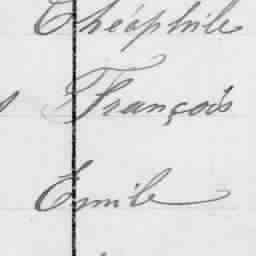 Théophile
François
Emile